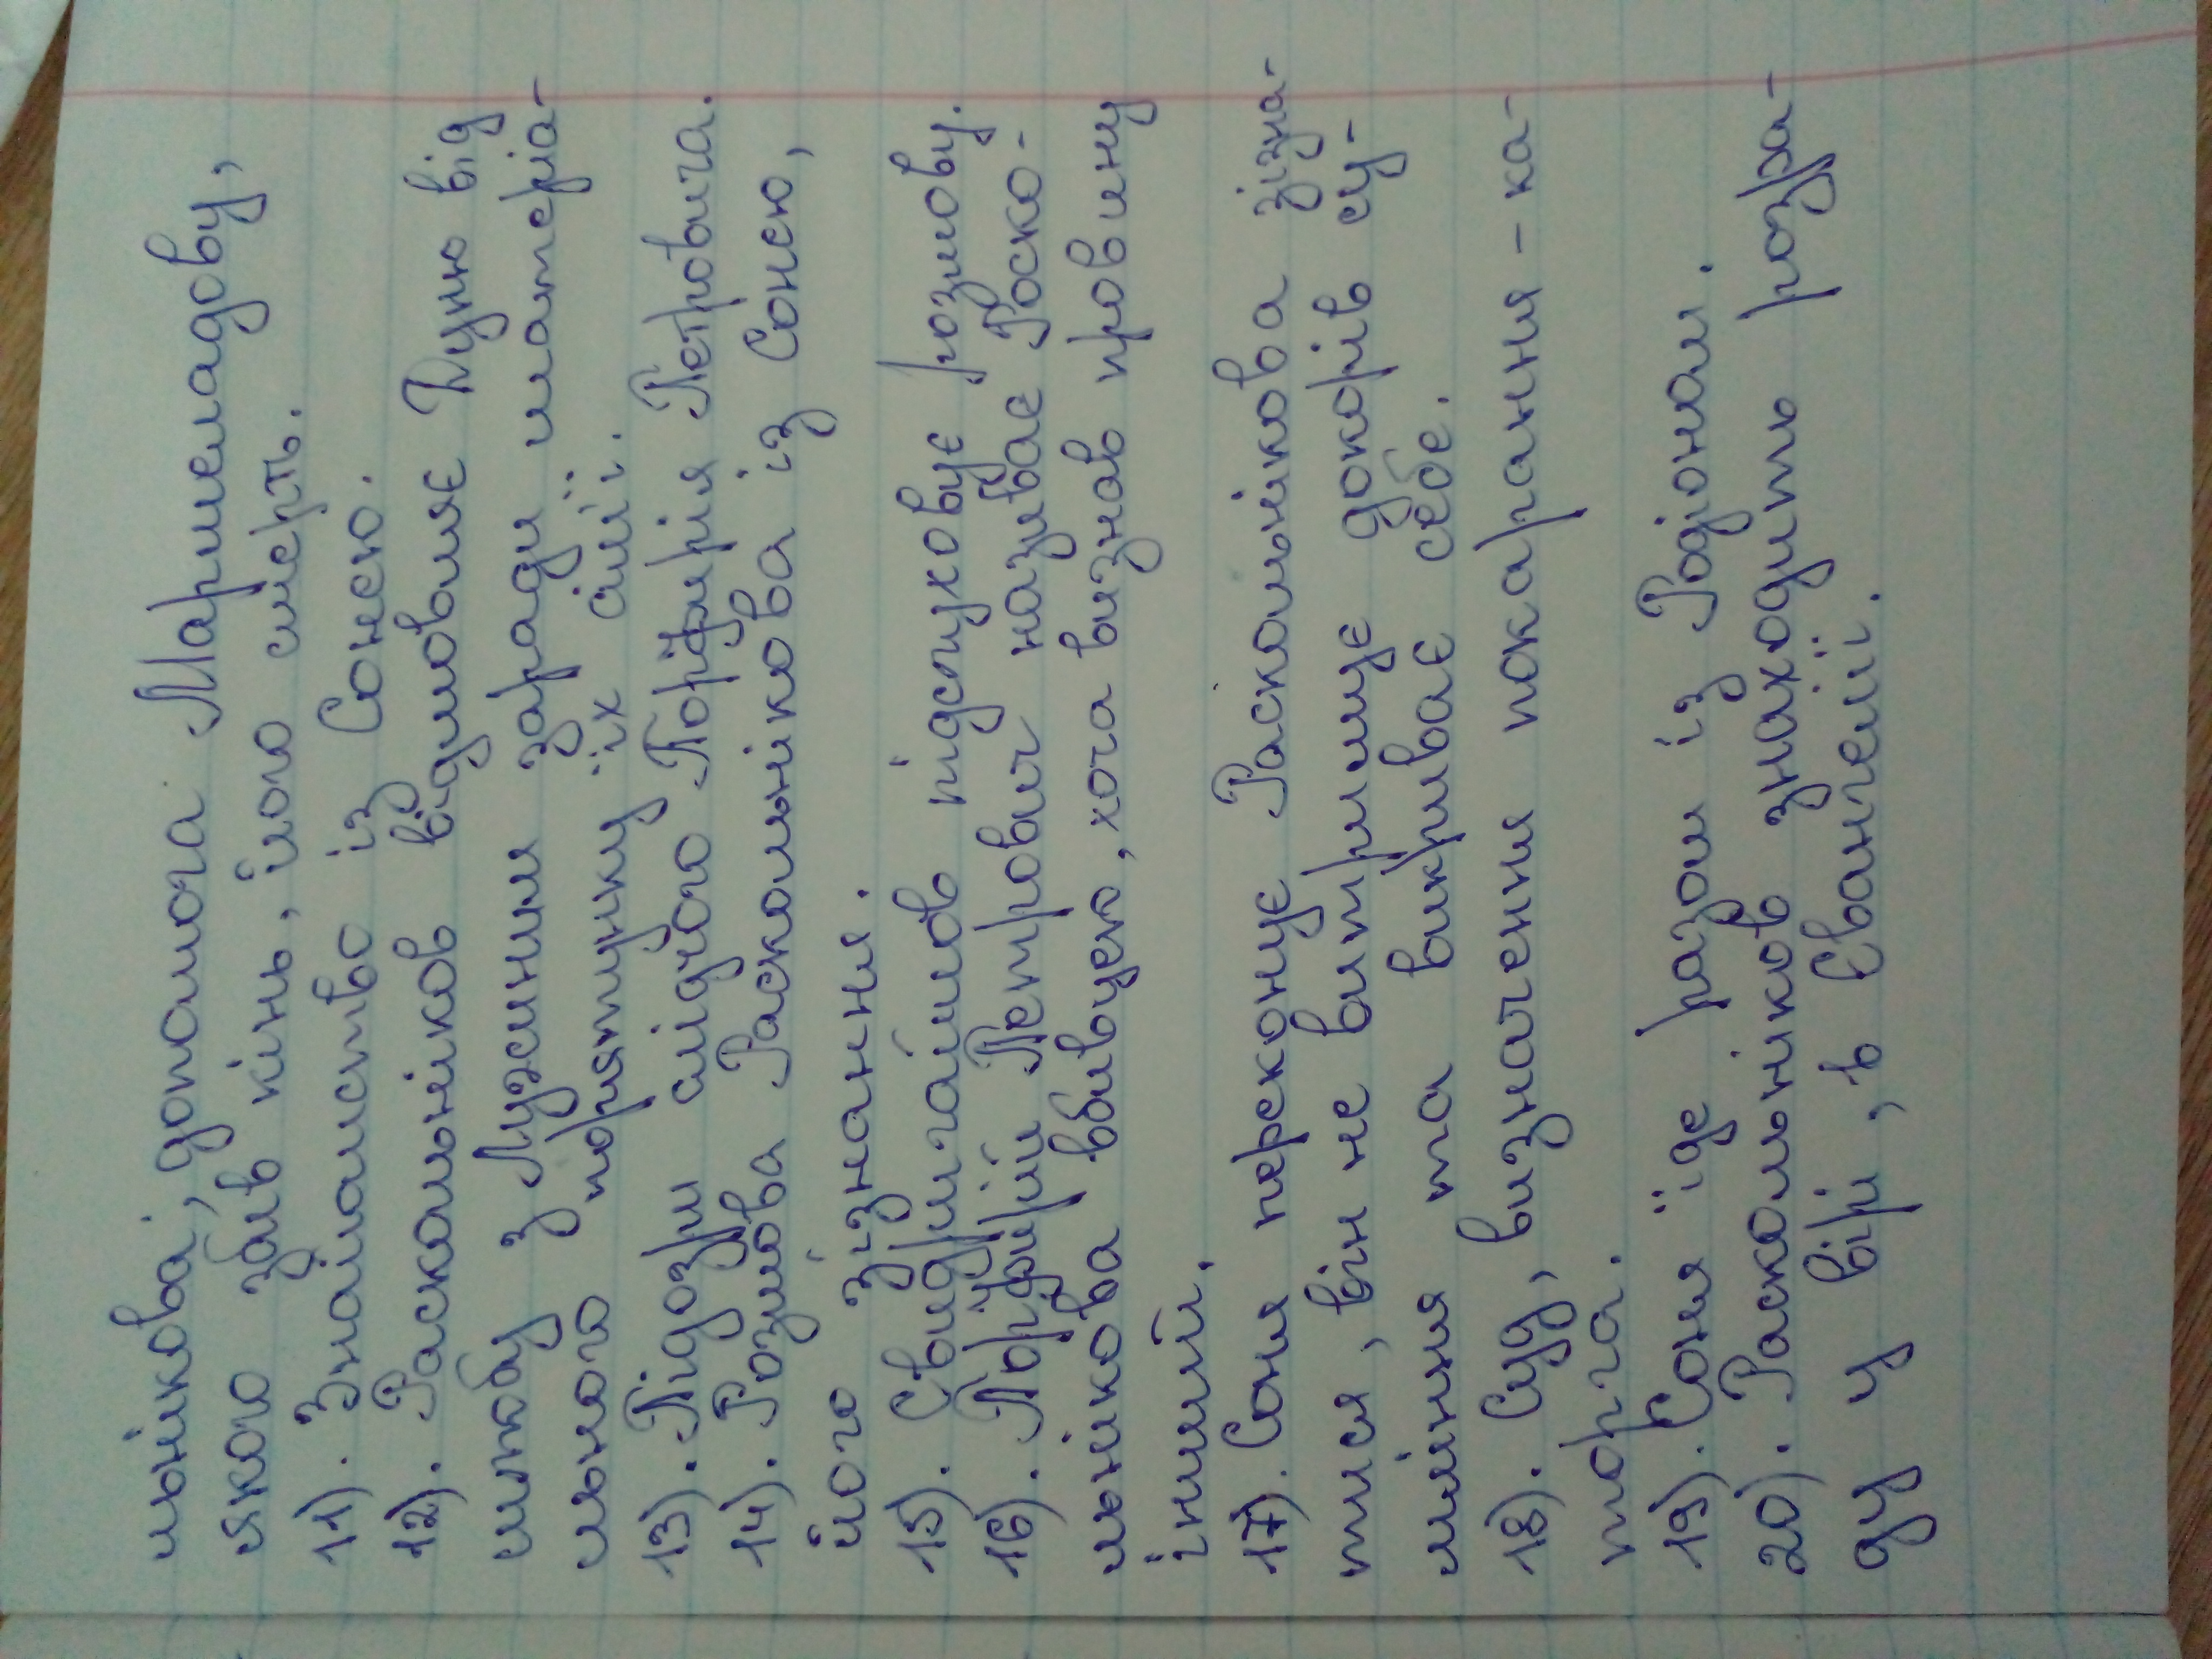 льнікова, допомога Мармеладову,
якого збив кінь, його смерть.
11). Знайомство із Сонею.
12). Раскольніков відмовляє Дуню від
шлюбу з Лужсиним заради матеріа-
льного порятунку їх сім'ї.
13). Підозри слідчого Порфирія Петровича.
14). Розмова Раскольнікова із Сонею,
його зізнання.
15). Свидригайлов підслуховує розмову.
16). Порфирій Петрович називає Роско-
льнікова вбивцею, хоча визнав провину
інший.
17). Соня переконує Раскольнікова зізна-
тися, він не витримує докорів су-
мління та викриває себе.
18). Суд, визначення покарання - ка-
торга.
19). Соня їде разом із Родіоном.
20). Раскольніков знаходить розра-
ду у вірі, в Євангелії.